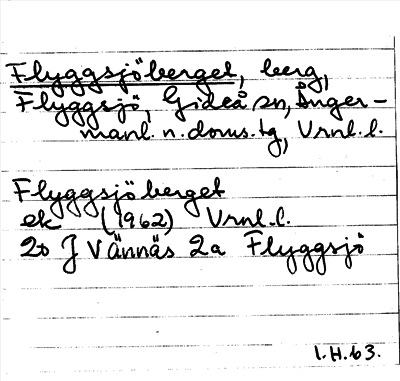 Flyggsjöberget, berg,
Flyggsjö, Gideå sn, Ånger-
manl. n. doms. tg, Vrnl. l.
Flyggsjöberget
ek (1962) Vrnl. l.
20 J Vännäs 2a Flyggsjö
1.H.63.